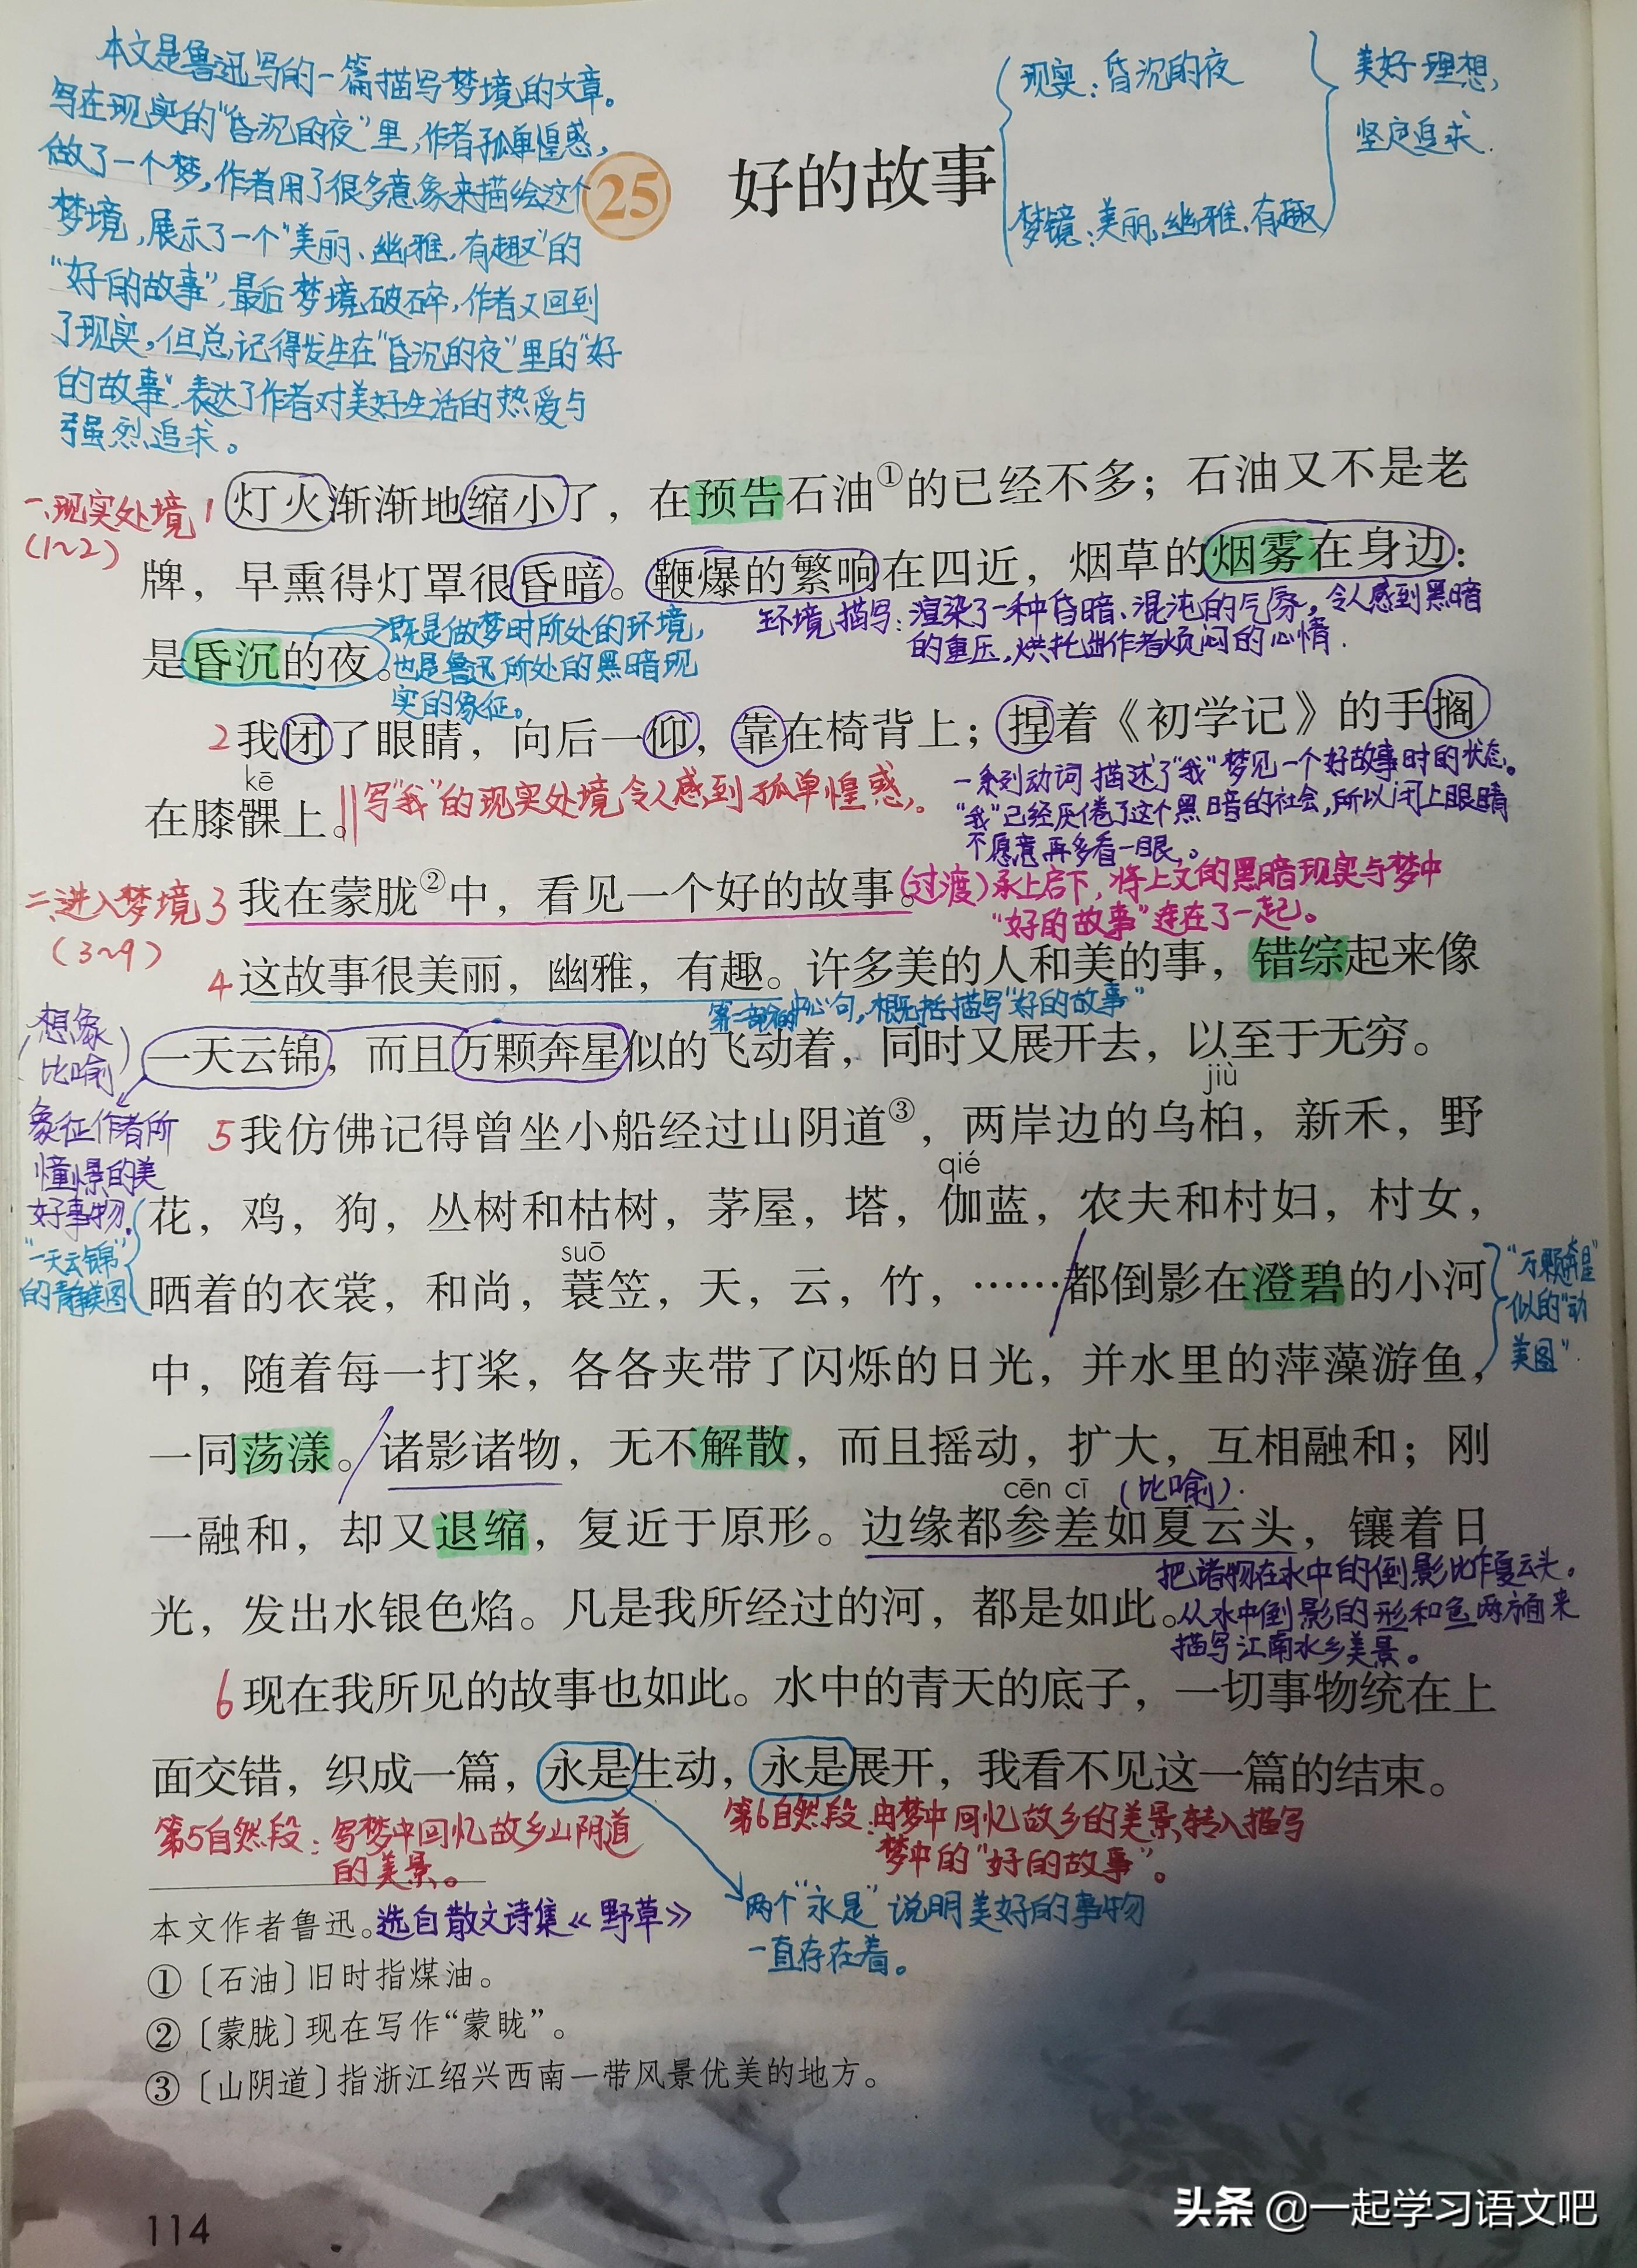 本文是鲁迅写的一篇描写梦境的文章。
写在现实的“昏沉的夜”里，作者孤单惶惑，
做了一个梦，作者用了很多意象来描绘这个
梦境，展示了一个“美丽、幽雅、有趣”的
“好的故事”，最后梦境破碎，作者又回到
了现实，但总记得发生在“昏沉的夜”里的“好
的故事”，表达了作者对美好生活的热爱与
强烈追求。
25 好的故事
现实：昏沉的夜
梦镜：美丽，幽雅，有趣
美好理想，
坚定追求．
一、现实处境
（1~2）
1 灯火渐渐地缩小了，在预告石油①的已经不多；石油又不是老
牌，早熏得灯罩很昏暗。鞭爆的繁响在四近，烟草的烟雾在身边：
环境描写：渲染了一种昏暗、混沌的气氛，令人感到黑暗
的重压，烘托出作者烦闷的心情．
是昏沉的夜。
既是做梦时所处的环境，
也是鲁迅所处的黑暗现
实的象征。
2 我闭了眼睛，向后一仰，靠在椅背上；捏着《初学记》的手搁
kē
在膝髁上。
写“我”的现实处境令人感到孤单惶惑。
一系列动词描述了“我”梦见一个好故事时的状态。
“我”已经厌倦了这个黑暗的社会，所以闭上眼睛
不愿意再多看一眼。
二、进入梦境
（3~9）
3 我在蒙胧②中，看见一个好的故事。
（过渡）承上启下，将上文的黑暗现实与梦中
“好的故事”连在了一起。
4 这故事很美丽，幽雅，有趣。许多美的人和美的事，错综起来像
第二部分的中心句，概括描写“好的故事”
一天云锦，而且万颗奔星似的飞动着，同时又展开去，以至于无穷。
想象
比喻
象征作者所
憧憬的美
好事物．
“一天云锦”
的静美图
jiù
5 我仿佛记得曾坐小船经过山阴道③，两岸边的乌桕，新禾，野
qié
花，鸡，狗，丛树和枯树，茅屋，塔，伽蓝，农夫和村妇，村女，
suō
晒着的衣裳，和尚，蓑笠，天，云，竹，……都倒影在澄碧的小河
“万颗奔星”
似的“动
美图”．
中，随着每一打桨，各各夹带了闪烁的日光，并水里的萍藻游鱼，
一同荡漾。诸影诸物，无不解散，而且摇动，扩大，互相融和；刚
cēn cī （比喻）．
一融和，却又退缩，复近于原形。边缘都参差如夏云头，镶着日
把诸物在水中的倒影比作夏云头。
光，发出水银色焰。凡是我所经过的河，都是如此。
从水中倒影的形和色两方面来
描写江南水乡美景。
6 现在我所见的故事也如此。水中的青天的底子，一切事物统在上
面交错，织成一篇，永是生动，永是展开，我看不见这一篇的结束。
第5自然段：写梦中回忆故乡山阴道
的美景。
第6自然段：由梦中回忆故乡的美景，转入描写
梦中的“好的故事”。
两个“永是”说明美好的事物
一直存在着。
本文作者鲁迅。选自散文诗集《野草》
①〔石油〕旧时指煤油。
②〔蒙胧〕现在写作“蒙眬”。
③〔山阴道〕指浙江绍兴西南一带风景优美的地方。
114
头条 @一起学习语文吧